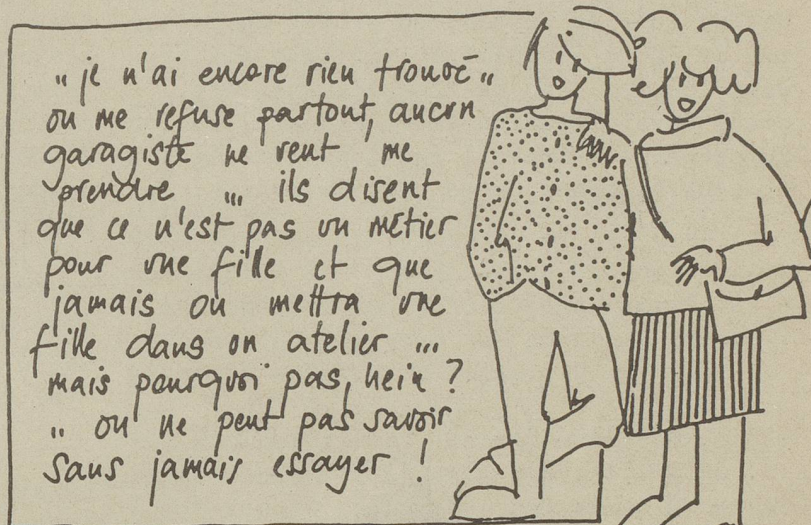 „ je n'ai encore rien trouvé „
on me refuse partout, aucun
garagiste ne veut me
prendre ... ils disent
que ce n'est pas un métier
pour une fille et que
jamais on mettra une
fille dans un atelier ...
mais pourquoi pas, hein ?
.. on ne peut pas savoir
sans jamais essayer !